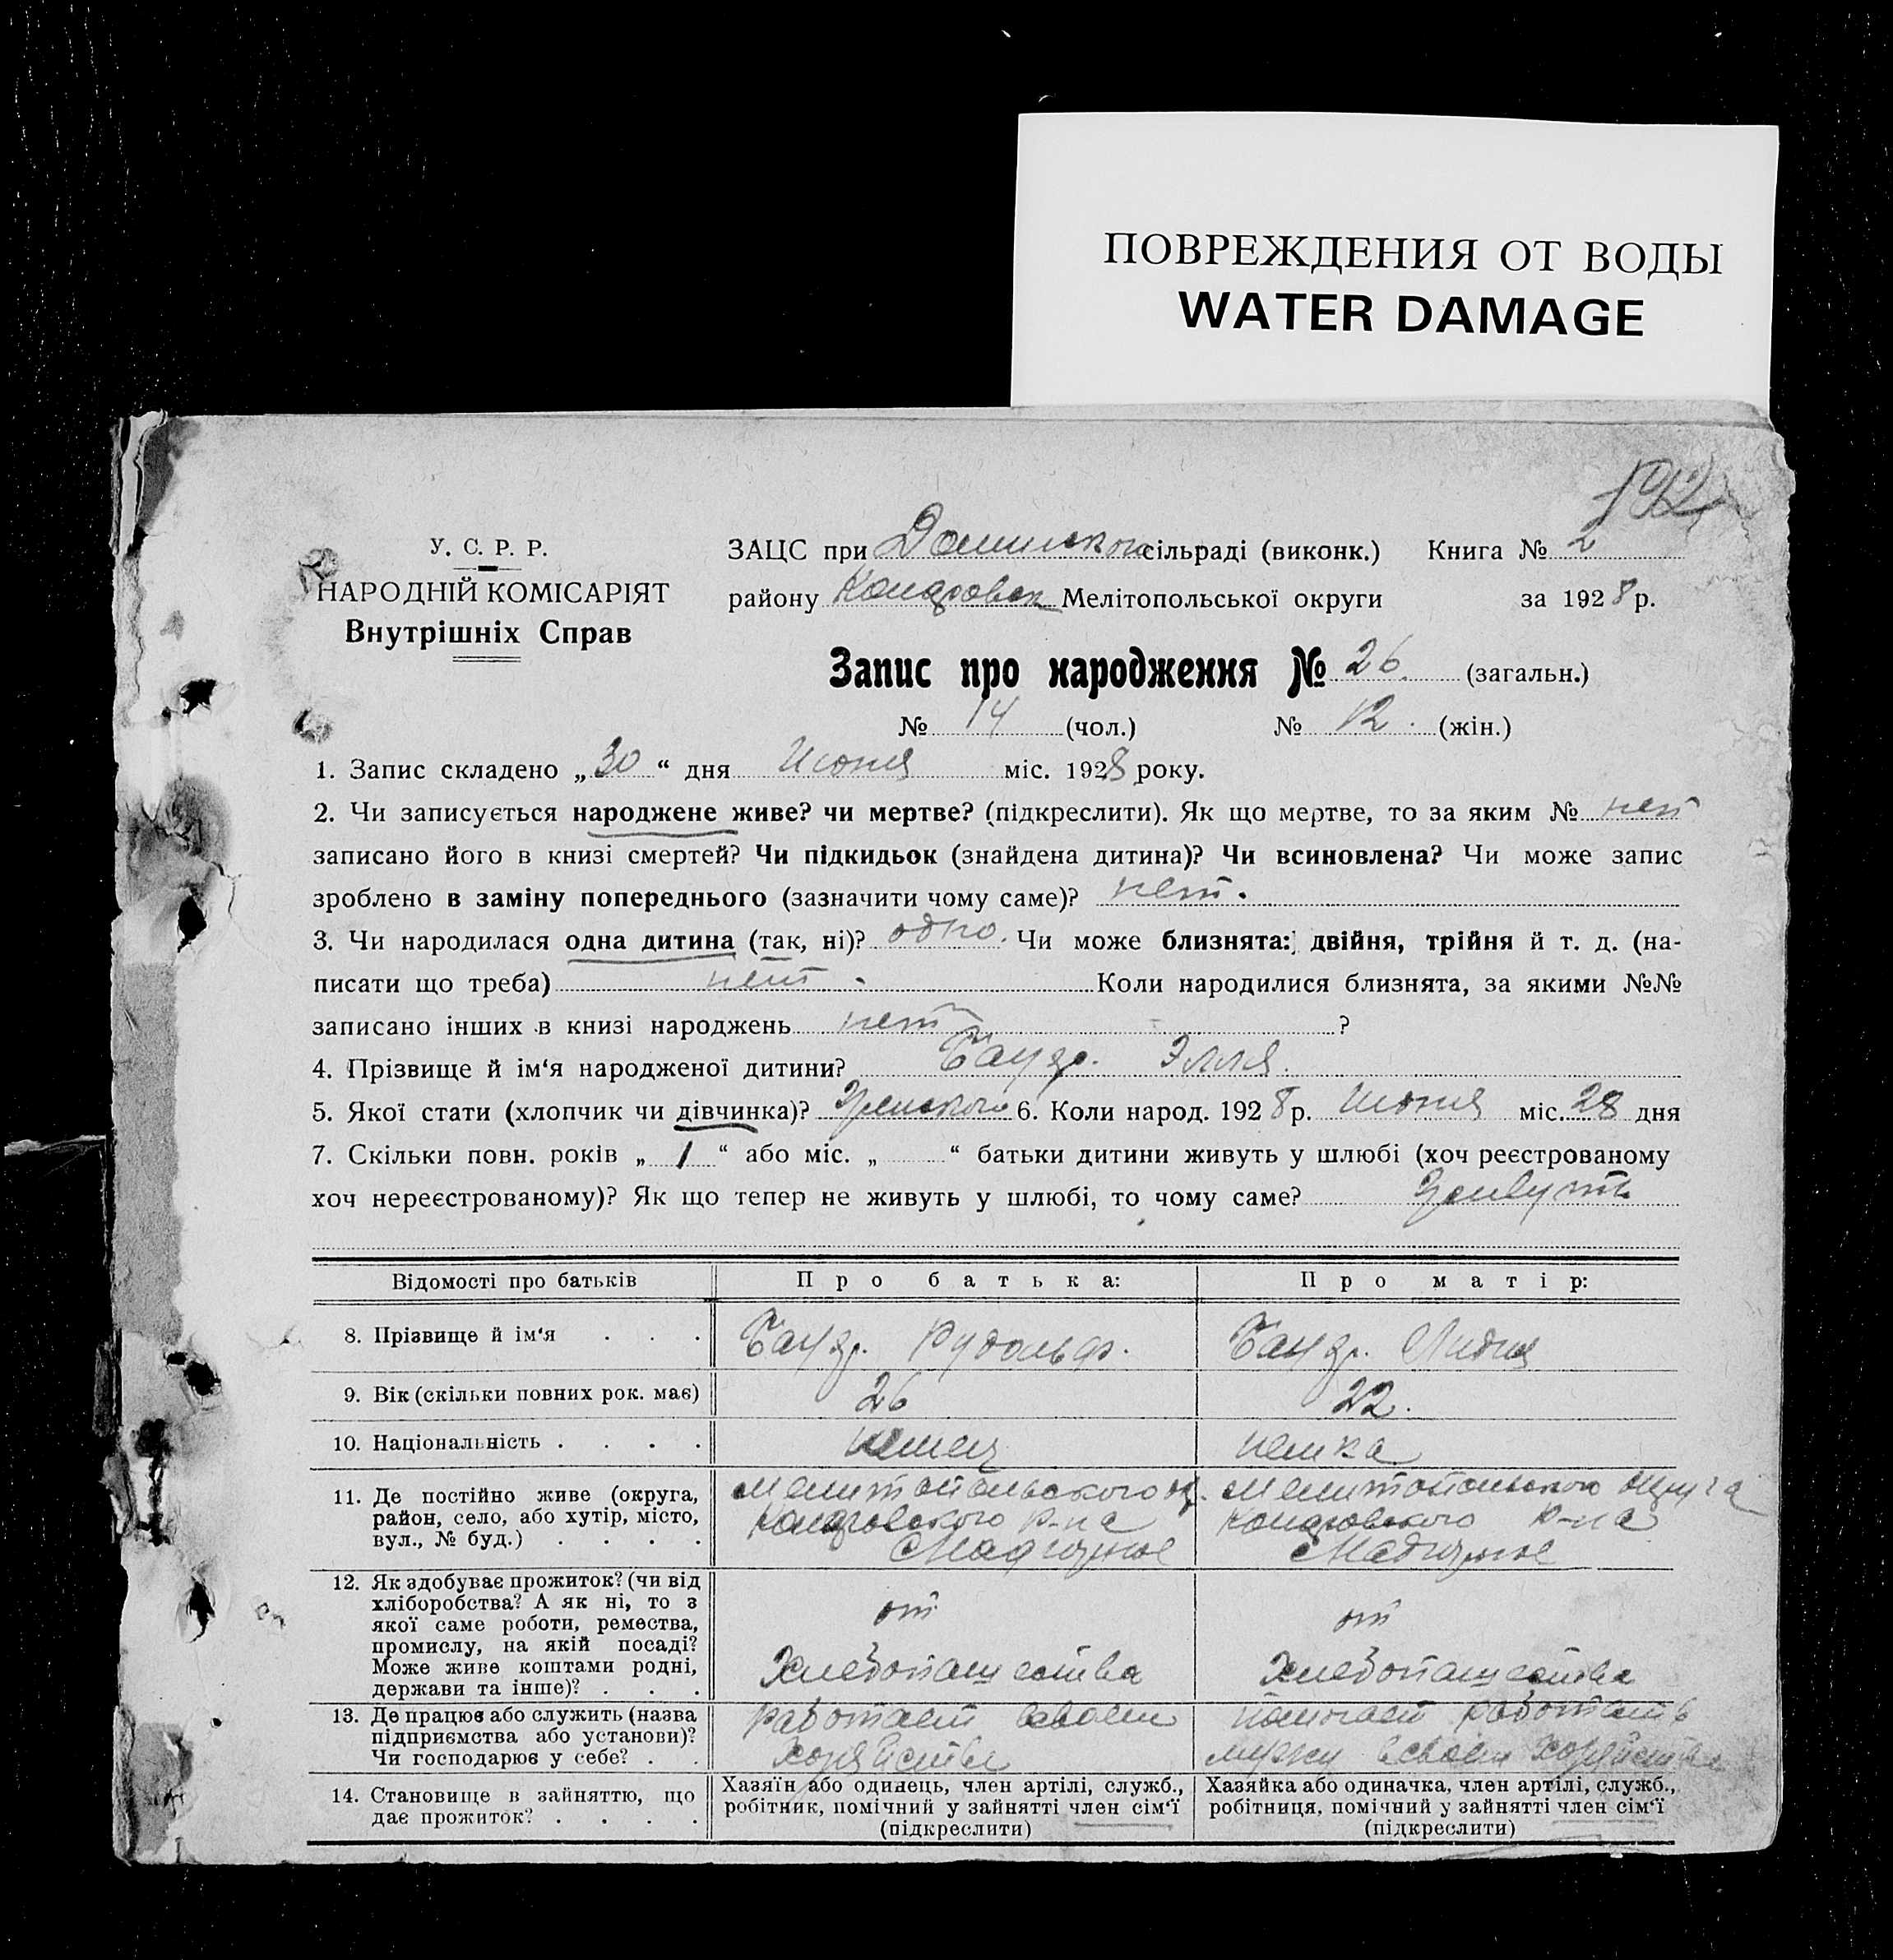 ПОВРЕЖДЕНИЯ ОТ ВОДЫ
WATER DAMAGE
У. С. Р. Р.
НАРОДНІЙ КОМІСАРІЯТ
Внутрішніх Справ
ЗАЦС при сільраді (виконк.) Книга № 2
району Мелітопольської округи за 1928 р.
Запис про народження № 26 (загальн.)
№ 14 (чол.) № 12. (жін.)
1. Запис складено „30“ дня Июня міс. 1928 року.
2. Чи записується народжене живе? чи мертве? (підкреслити). Як що мертве, то за яким № нет
записано його в книзі смертей? Чи підкидьок (знайдена дитина)? Чи всиновлена? Чи може запис
зроблено в заміну попереднього (зазначити чому саме)? нет.
3. Чи народилася одна дитина (так, ні)? одно. Чи може близнята: двійня, трійня й т. д. (на-
писати що треба) нет. Коли народилися близнята, за якими №№
записано інших в книзі народжень нет ?
4. Прізвище й ім‘я народженої дитини? Бауэр. Элля.
5. Якої стати (хлопчик чи дівчинка)? Женского 6. Коли народ. 1928 р. Июня міс. 28 дня
7. Скільки повн. років „ 1 “ або міс. „ “ батьки дитини живуть у шлюбі (хоч реєстрованому
хоч нереєстрованому)? Як що тепер не живуть у шлюбі, то чому саме? Живуть
Відомості про батьків Про батька: Про матір:
8. Прізвище й ім‘я . . . Бауэр. Рудольф. Бауэр. Лидия
9. Вік (скільки повних рок. має) 26 22.
10. Національність . . . . немец немка
11. Де постійно живе (округа,
район, село, або хутір, місто,
вул., № буд.) . . . .
Мелитопольского
р-на
Мелитопольского округа
р-на
12. Як здобуває прожиток? (чи від
хліборобства? А як ні, то з
якої саме роботи, ремества,
промислу, на якій посаді?
Може живе коштами родні,
держави та інше)? . . .
от
Хлебопашества
от
Хлебопашества
13. Де працює або служить (назва
підприємства або установи)?
Чи господарює у себе? . .
работает всвоем
хозяйстве
помогает работать
мужу всвоем хозяйстве
14. Становище в зайняттю, що
дає прожиток? . . . .
Хазяїн або одинець, член артілі, служб.,
робітник, помічний у зайнятті член сім‘ї
(підкреслити)
Хазяйка або одиначка, член артілі, служб.,
робітниця, помічний у зайнятті член сім‘ї
(підкреслити)